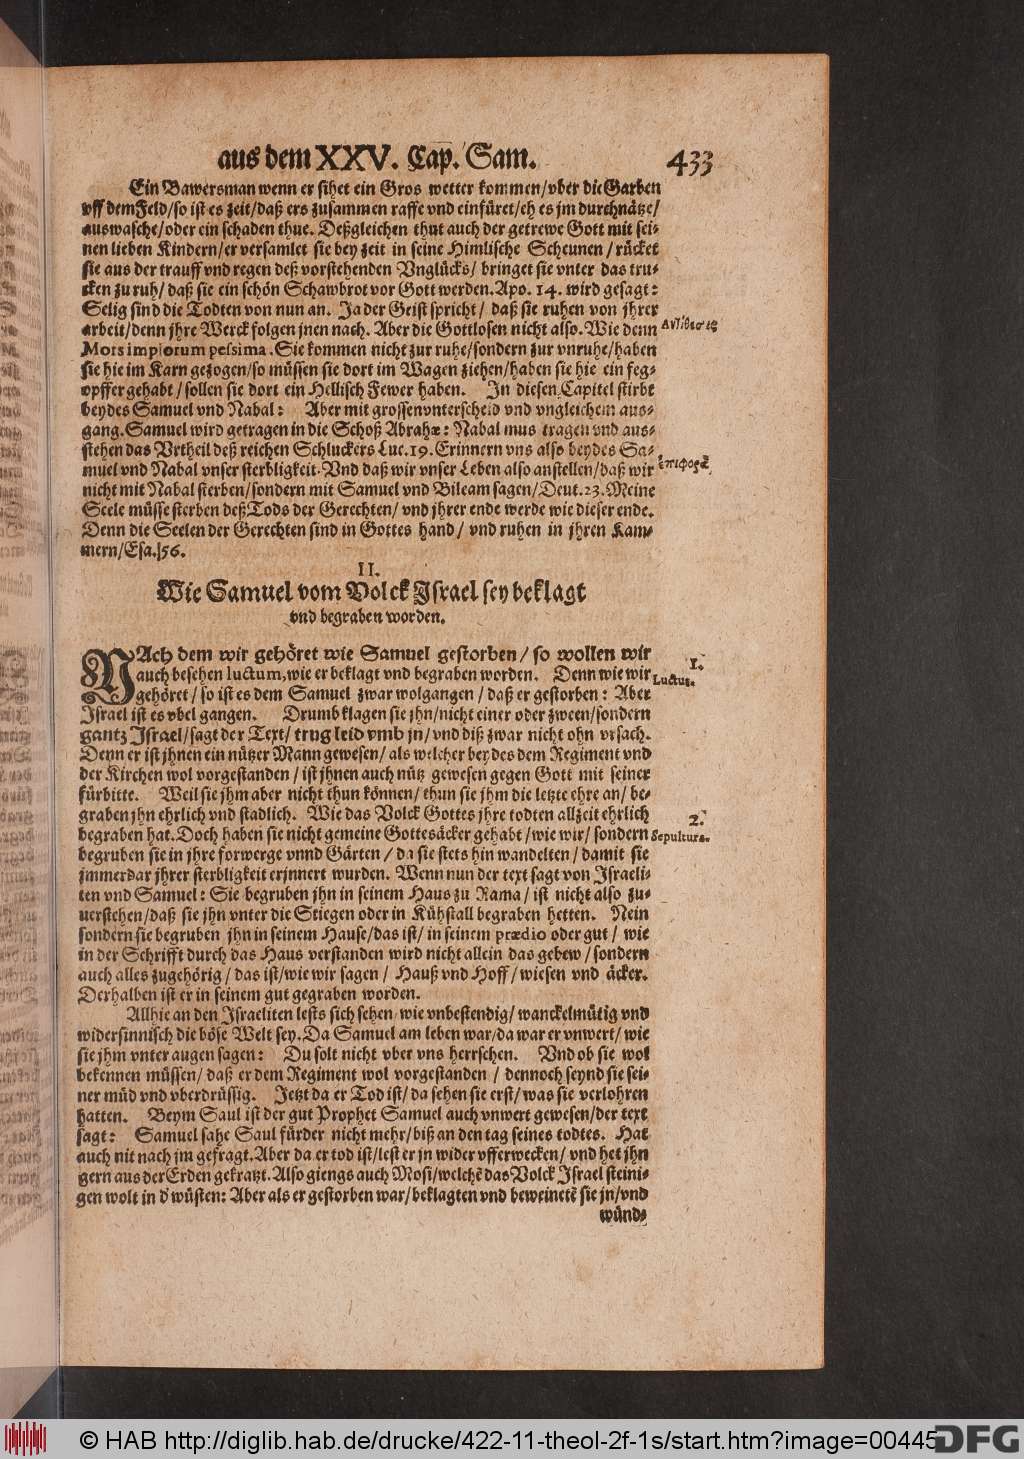 aus dem XXV. Cap. Sam. 433
Ein Bawersman wenn er sihet ein Gros wetter kommen/vber die Garben
vff dem Feld/so ist es zeit/daß ers zusammen raffe vnd einfüret/eh es jm durchnätze/
auswasche/oder ein schaden thue. Deßgleichen thut auch der getrewe Gott mit sei-
nen lieben Kindern/er versamlet sie bey zeit in seine Himlische Scheunen/rücket
sie aus der trauff vnd regen deß vorstehenden Vnglücks/ bringet sie vnter das tru-
cken zu ruh/ daß sie ein schön Schawbrot vor Gott werden. Apo. 14. wird gesagt:
Selig sind die Todten von nun an. Ja der Geist spricht/ daß sie ruhen von jhrer
arbeit/denn jhre Werck folgen jnen nach. Aber die Gottlosen nicht also. Wie denn
Mors impiorum pessima. Sie kommen nicht zur ruhe/sondern zur vnruhe/haben
sie hie im Karn gezogen/so müssen sie dort im Wagen ziehen/haben sie hie ein feg-
opffer gehabt/sollen sie dort ein Hellisch Fewer haben. In diesen Capitel stirbt
beydes Samuel vnd Nabal: Aber mit grossen vnterscheid vnd vngleichem aus-
gang. Samuel wird getragen in die Schoß Abrahæ: Nabal mus tragen vnd aus-
stehen das Vrtheil deß reichen Schluckers Luc. 19. Erinnern vns also beydes Sa-
muel vnd Nabal vnser sterbligkeit. Vnd daß wir vnser Leben also anstellen/daß wir
nicht mit Nabal sterben/sondern mit Samuel vnd Bileam sagen/Deut. 23. Meine
Seele müsse sterben deß Tods der Gerechten/ vnd jhrer ende werde wie dieser ende.
Denn die Seelen der Gerechten sind in Gottes hand/ vnd ruhen in jhren Kam-
mern/Esa. 56.
II.
Wie Samuel vom Volck Israel sey beklagt
vnd begraben worden.
NAch dem wir gehöret wie Samuel gestorben/ so wollen wir
auch besehen luctum, wie er beklagt vnd begraben worden. Denn wie wir
gehöret/ so ist es dem Samuel zwar wolgangen/ daß er gestorben: Aber
Israel ist es vbel gangen. Drumb klagen sie jhn/nicht einer oder zween/sondern
gantz Israel/sagt der Text/ trug leid vmb jn/ vnd diß zwar nicht ohn vrsach.
Denn er ist jhnen ein nützer Mann gewesen/ als welcher beydes dem Regiment vnd
der Kirchen wol vorgestanden/ ist jhnen auch nütz gewesen gegen Gott mit seiner
fürbitte. Weil sie jhm aber nicht thun können/ thun sie jhm die letzte ehre an/ be-
graben jhn ehrlich vnd stadlich. Wie das Volck Gottes jhre todten allzeit ehrlich
begraben hat. Doch haben sie nicht gemeine Gottesäcker gehabt/wie wir/ sondern
begruben sie in jhre forwerge vnnd Gärten/ da sie stets hin wandelten/ damit sie
jmmerdar jhrer sterbligkeit erjnnert wurden. Wenn nun der text sagt von Israeli-
ten vnd Samuel: Sie begruben jhn in seinem Haus zu Rama/ ist nicht also zu-
uerstehen/daß sie jhn vnter die Stiegen oder in Kühstall begraben hetten. Nein
sondern sie begruben jhn in seinem Hause/das ist/ in seinem prædio oder gut/ wie
in der Schrifft durch das Haus verstanden wird nicht allein das gebew/ sondern
auch alles zugehörig/ das ist/wie wir sagen/ Hauß vnd Hoff/ wiesen vnd äcker.
Derhalben ist er in seinem gut gegraben worden.
Allhie an den Israeliten lests sich sehen/ wie vnbestendig/ wanckelmütig vnd
widersinnisch die böse Welt sey. Da Samuel am leben war/da war er vnwert/ wie
sie jhm vnter augen sagen: Du solt nicht vber vns herrschen. Vnd ob sie wol
bekennen müssen/ daß er dem Regiment wol vorgestanden/ dennoch seynd sie sei-
ner müd vnd vberdrüssig. Jetzt da er Tod ist/ da sehen sie erst/ was sie verlohren
hatten. Beym Saul ist der gut Prophet Samuel auch vnwert gewesen/der text
sagt: Samuel sahe Saul fürder nicht mehr/biß an den tag seines todtes. Hat
auch nit nach jm gefragt. Aber da er tod ist/lest er jn wider vfferwecken/ vnd het jhn
gern aus der Erden gekratzt. Also giengs auch Mosi/welchē das Volck Israel steini-
gen wolt in d' wüsten: Aber als er gestorben war/beklagten vnd beweinetē sie jn/vnd
wünd-
Ἀντίθεσις
ἐπιφορὰ
1.
Luctus.
2.
Sepultura.
© HAB http://diglib.hab.de/drucke/422-11-theol-2f-1s/start.htm?image=00445
DFG